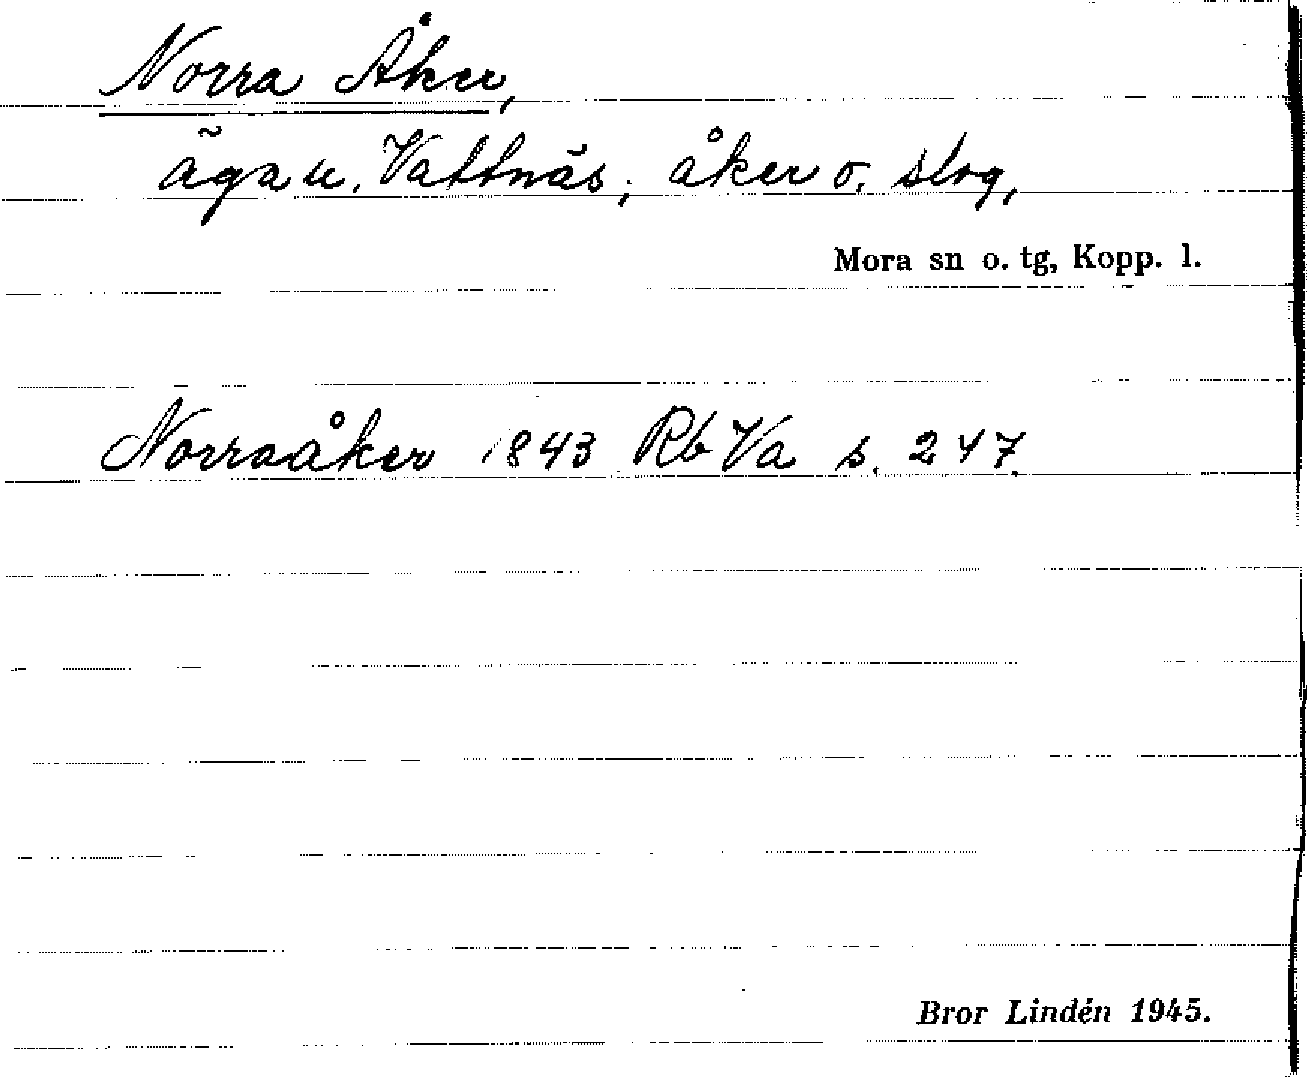 Norra Åker,
äga u. Vattnäs; åker o. slog,
Mora sn o. tg, Kopp. l.
Norraåker 1843 Rb Va s. 247
Bror Lindén 1945.